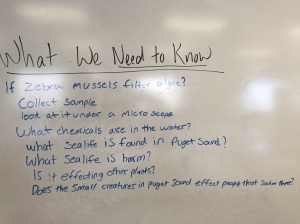 What We Need to Know
If Zebra mussels filter algae?
Collect Sample
look at it under a microscope
What chemicals are in the water?
What Sealife is found in Puget Sound?
What Sealife is harm?
Is it effecting other plants?
Does the Small creatures in puget Sound effect people that swim there?